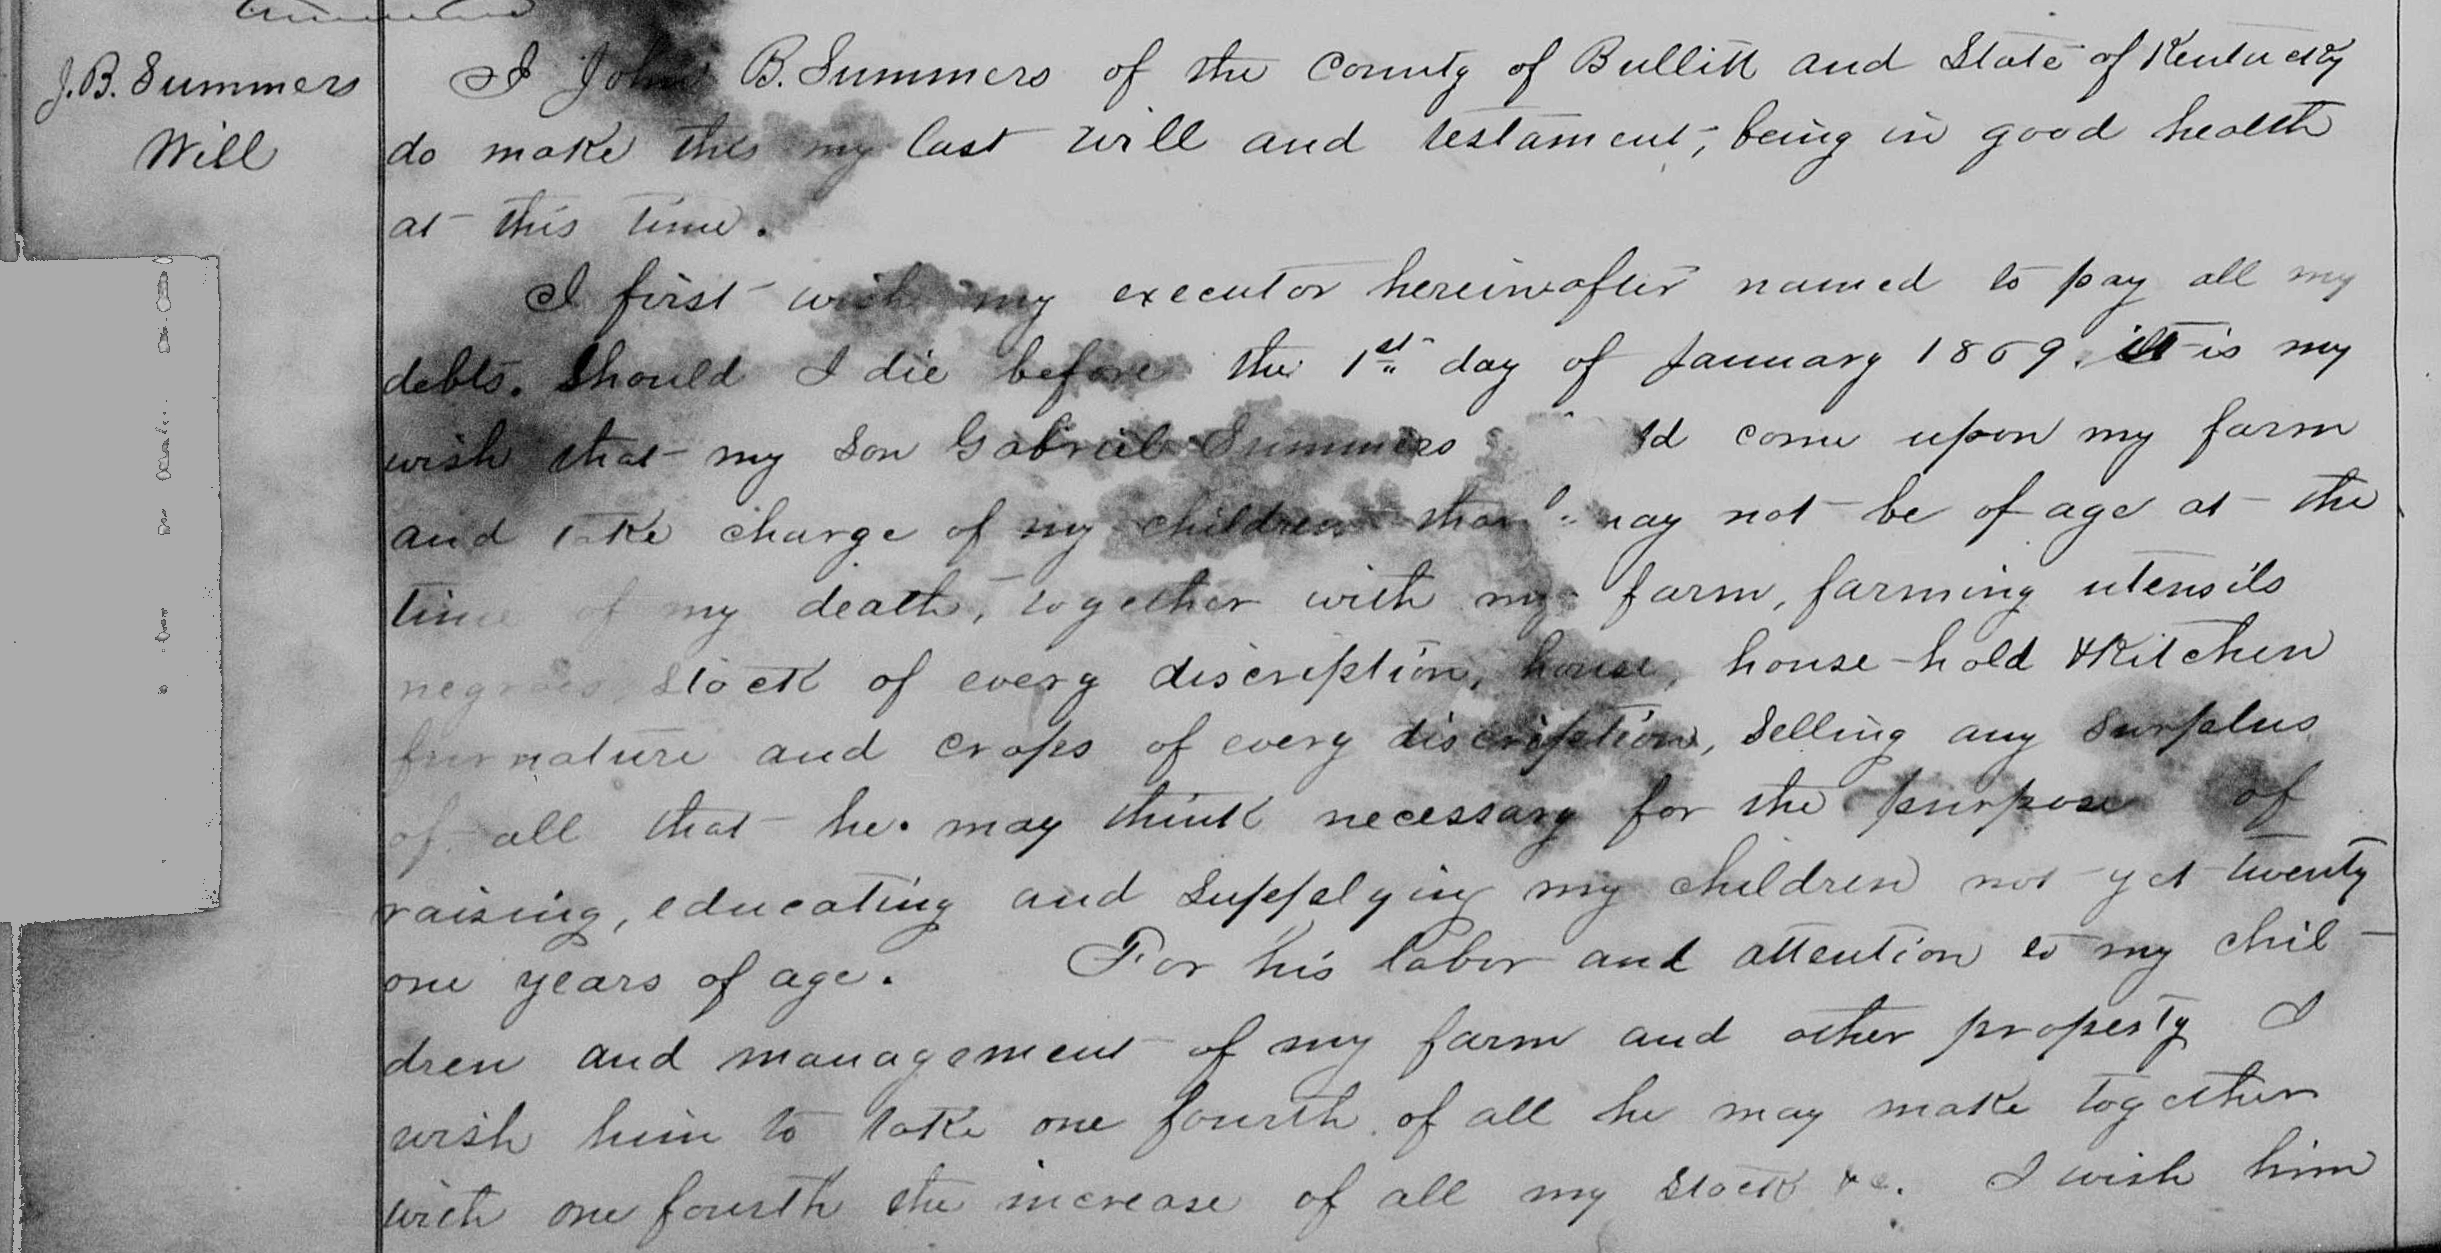 J.B. Summers
Will
I John B. Summers of the County of Bullitt and State of Kentucky
do make this my last will and testament, being in good health
at this time.
I first wish my executor hereinafter named to pay all my
debts. Should I die before the 1st day of January 1869. it is my
wish that my son Gabriel Summers ld come upon my farm
and take charge of my children that may not be of age at the
time of my death, together with my farm, farming utensils
negroes stock of every discription, house, house-hold & Kitchen
furnature and crops of every discription, selling any surplus
of all that he. may think necessary for the purpose of
raising, educating and supplying my children not yet twenty
one years of age. For his labor and attention to my chil-
dren and management of my farm and other property I
wish him to take one fourth of all he may make together
with one fourth the increase of all my stock &c. I wish him